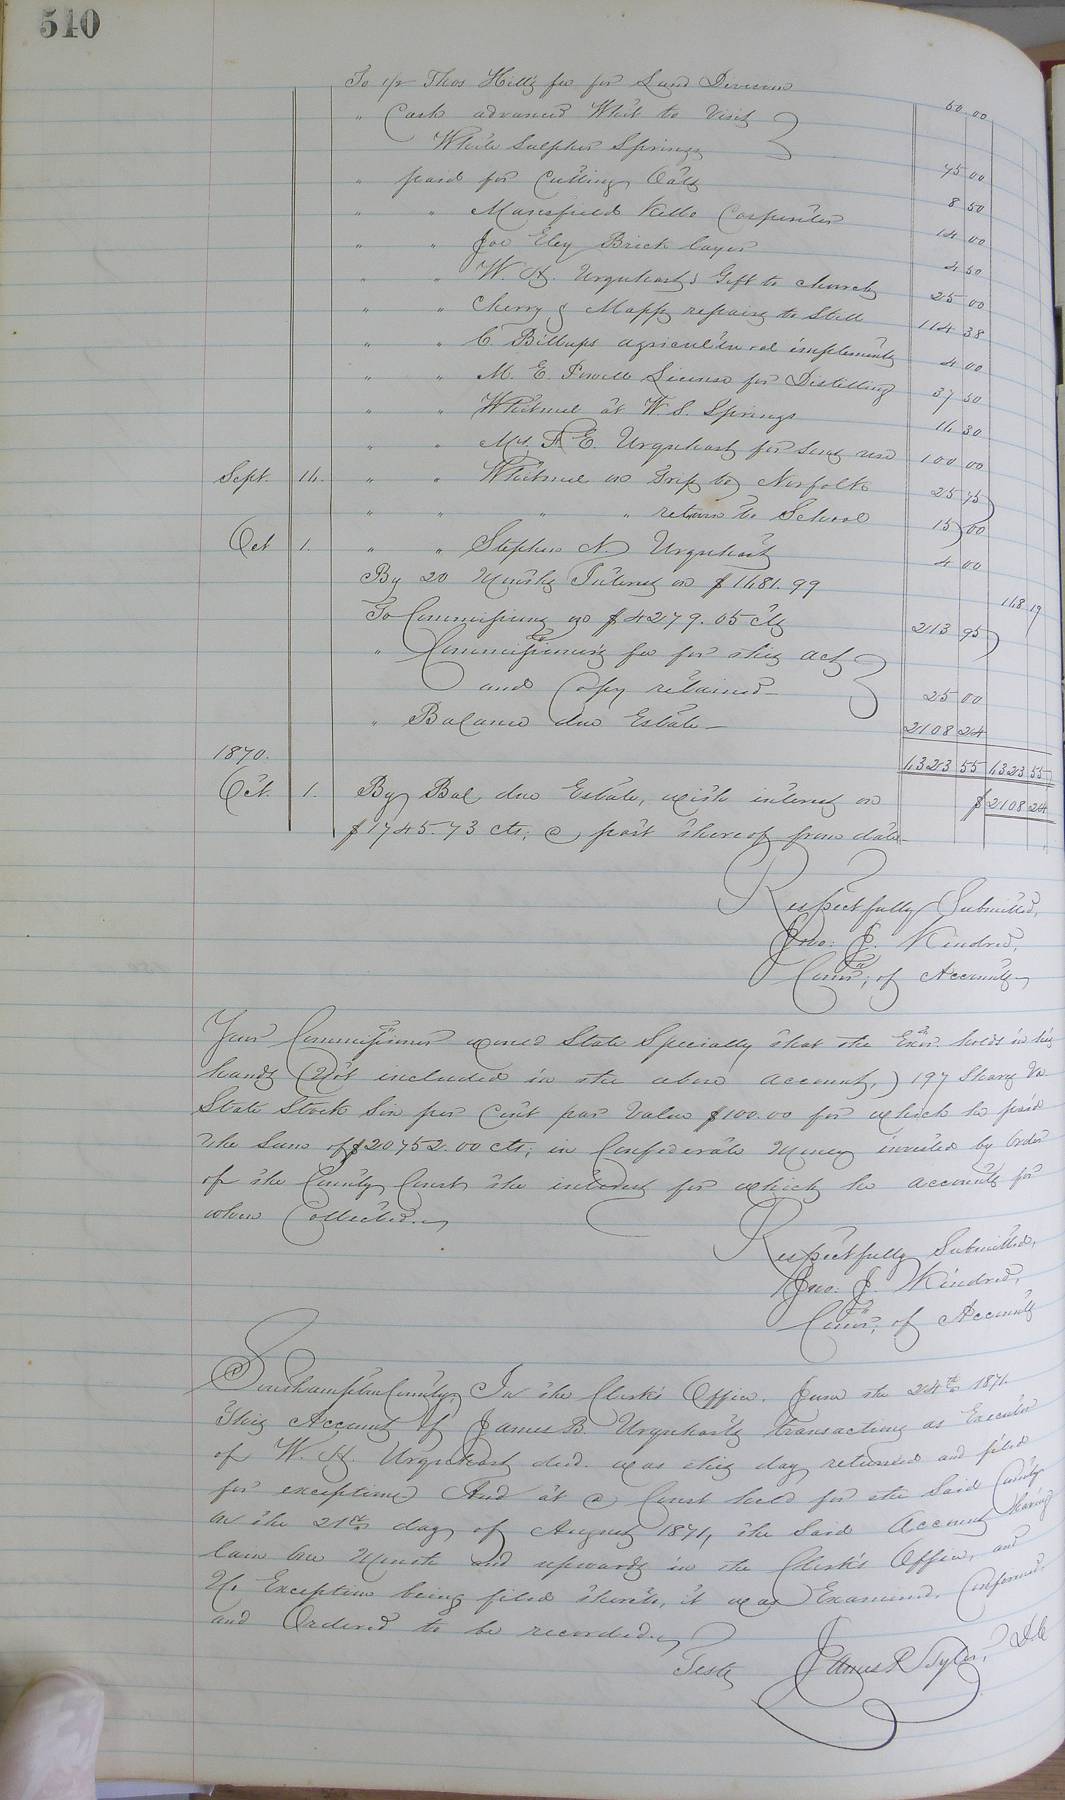 510
To 1/2 Thos Hill's fee for Land Division 50 00
" Cash advanced Whit to visit
White Sulpher Springs 75 00
" paid for Cutting Oats 8 50
" " Mansfield Kello Carpenter 14 00
" " Joe Eley Brick layer 4 50
" " W. H. Urquhart's Gift to church 25 00
" " Cherry & Mapp repairing to Still 114 38
" " C. Billups agricultural implements 4 00
" " M. E. Powell License for Distilling 37 50
" " Whitmel at W. S. Springs 14 30
" " Mrs. E. Urquhart for use 100 00
Sept. 14. " " Whitmel on Trip to Norfolk 25 75
" " " " return to School 15 00
Oct 1. " " Stephen N. Urquhart 4 00
By 20 Months Interest on $1481.99 148 19
To Commissions on $4279.05 cts 213 95
" Commissioner's fee for this act
and Copy retained 25 00
" Balance due Estate 2108 24
1870. 4323 55 4323 55
Oct. 1. By Bal due Estate, with interest on $2108 24
$1745.73 cts; a part thereof from date
Respectfully Submitted,
Jno: J. Kindred,
Comr; of Accounts
Your Commissioner would State Specially that the Exor. holds in his
hands (Not included in the above account,) 197 Shares Va
State Stock Six per Cent par Value $100.00 for which he paid
the Sum of $20752.00 cts; in Confederate Money invested by Order
of the County Court, the interest for which he accounts for
when Collected.
Respectfully Submitted,
Jno. J. Kindred,
Comr; of Accounts
Southampton County, In the Clerk's Office. June the 24th 1871.
This Account of James B. Urquhart's transactions as Executor
of W. H. Urquhart decd. was this day returned and filed
for exceptions And at a Court held for the Said County
on the 21st day of August 1871, the Said Account having
lain One Month and upwards in the Clerk's Office, and
No Exception being filed thereto, it was Examined, Confirmed
and Ordered to be recorded.
Teste James R Tyler, D.C